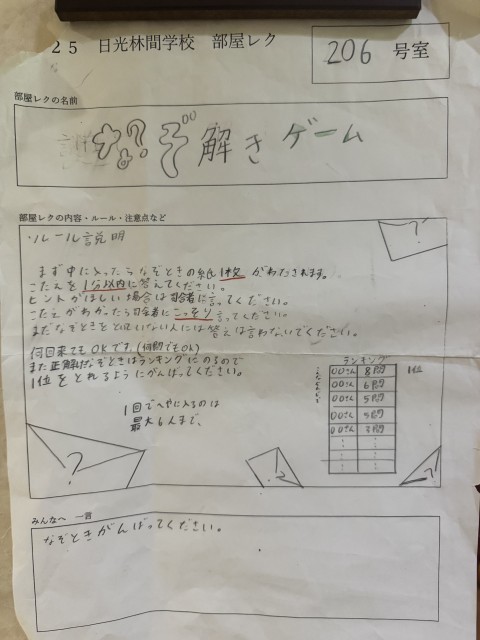 25 日光林間学校 部屋レク
206 号室
部屋レクの名前
なぞ解きゲーム
部屋レクの内容・ルール・注意点など
・ルール説明
まず中に入ったらなぞときの紙1枚がわたされます。
こたえを1分以内に答えてください。
ヒントがほしい場合は司会者に言ってください。
こたえがわかったら司会者にこっそり言ってください。
まだなぞときをといていない人には答えは言わないでください。
何回来てもOKです。(何問でもOK)
また正解したなぞときはランキングにのるので
1位をとれるようにがんばってください。
1回でへやに入るのは
最大6人まで、
ランキング
〇〇さん 8問 1位
〇〇さん 6問
〇〇さん 5問
〇〇さん 5問
〇〇さん 3問
みんなへ 一言
なぞときがんばってください。